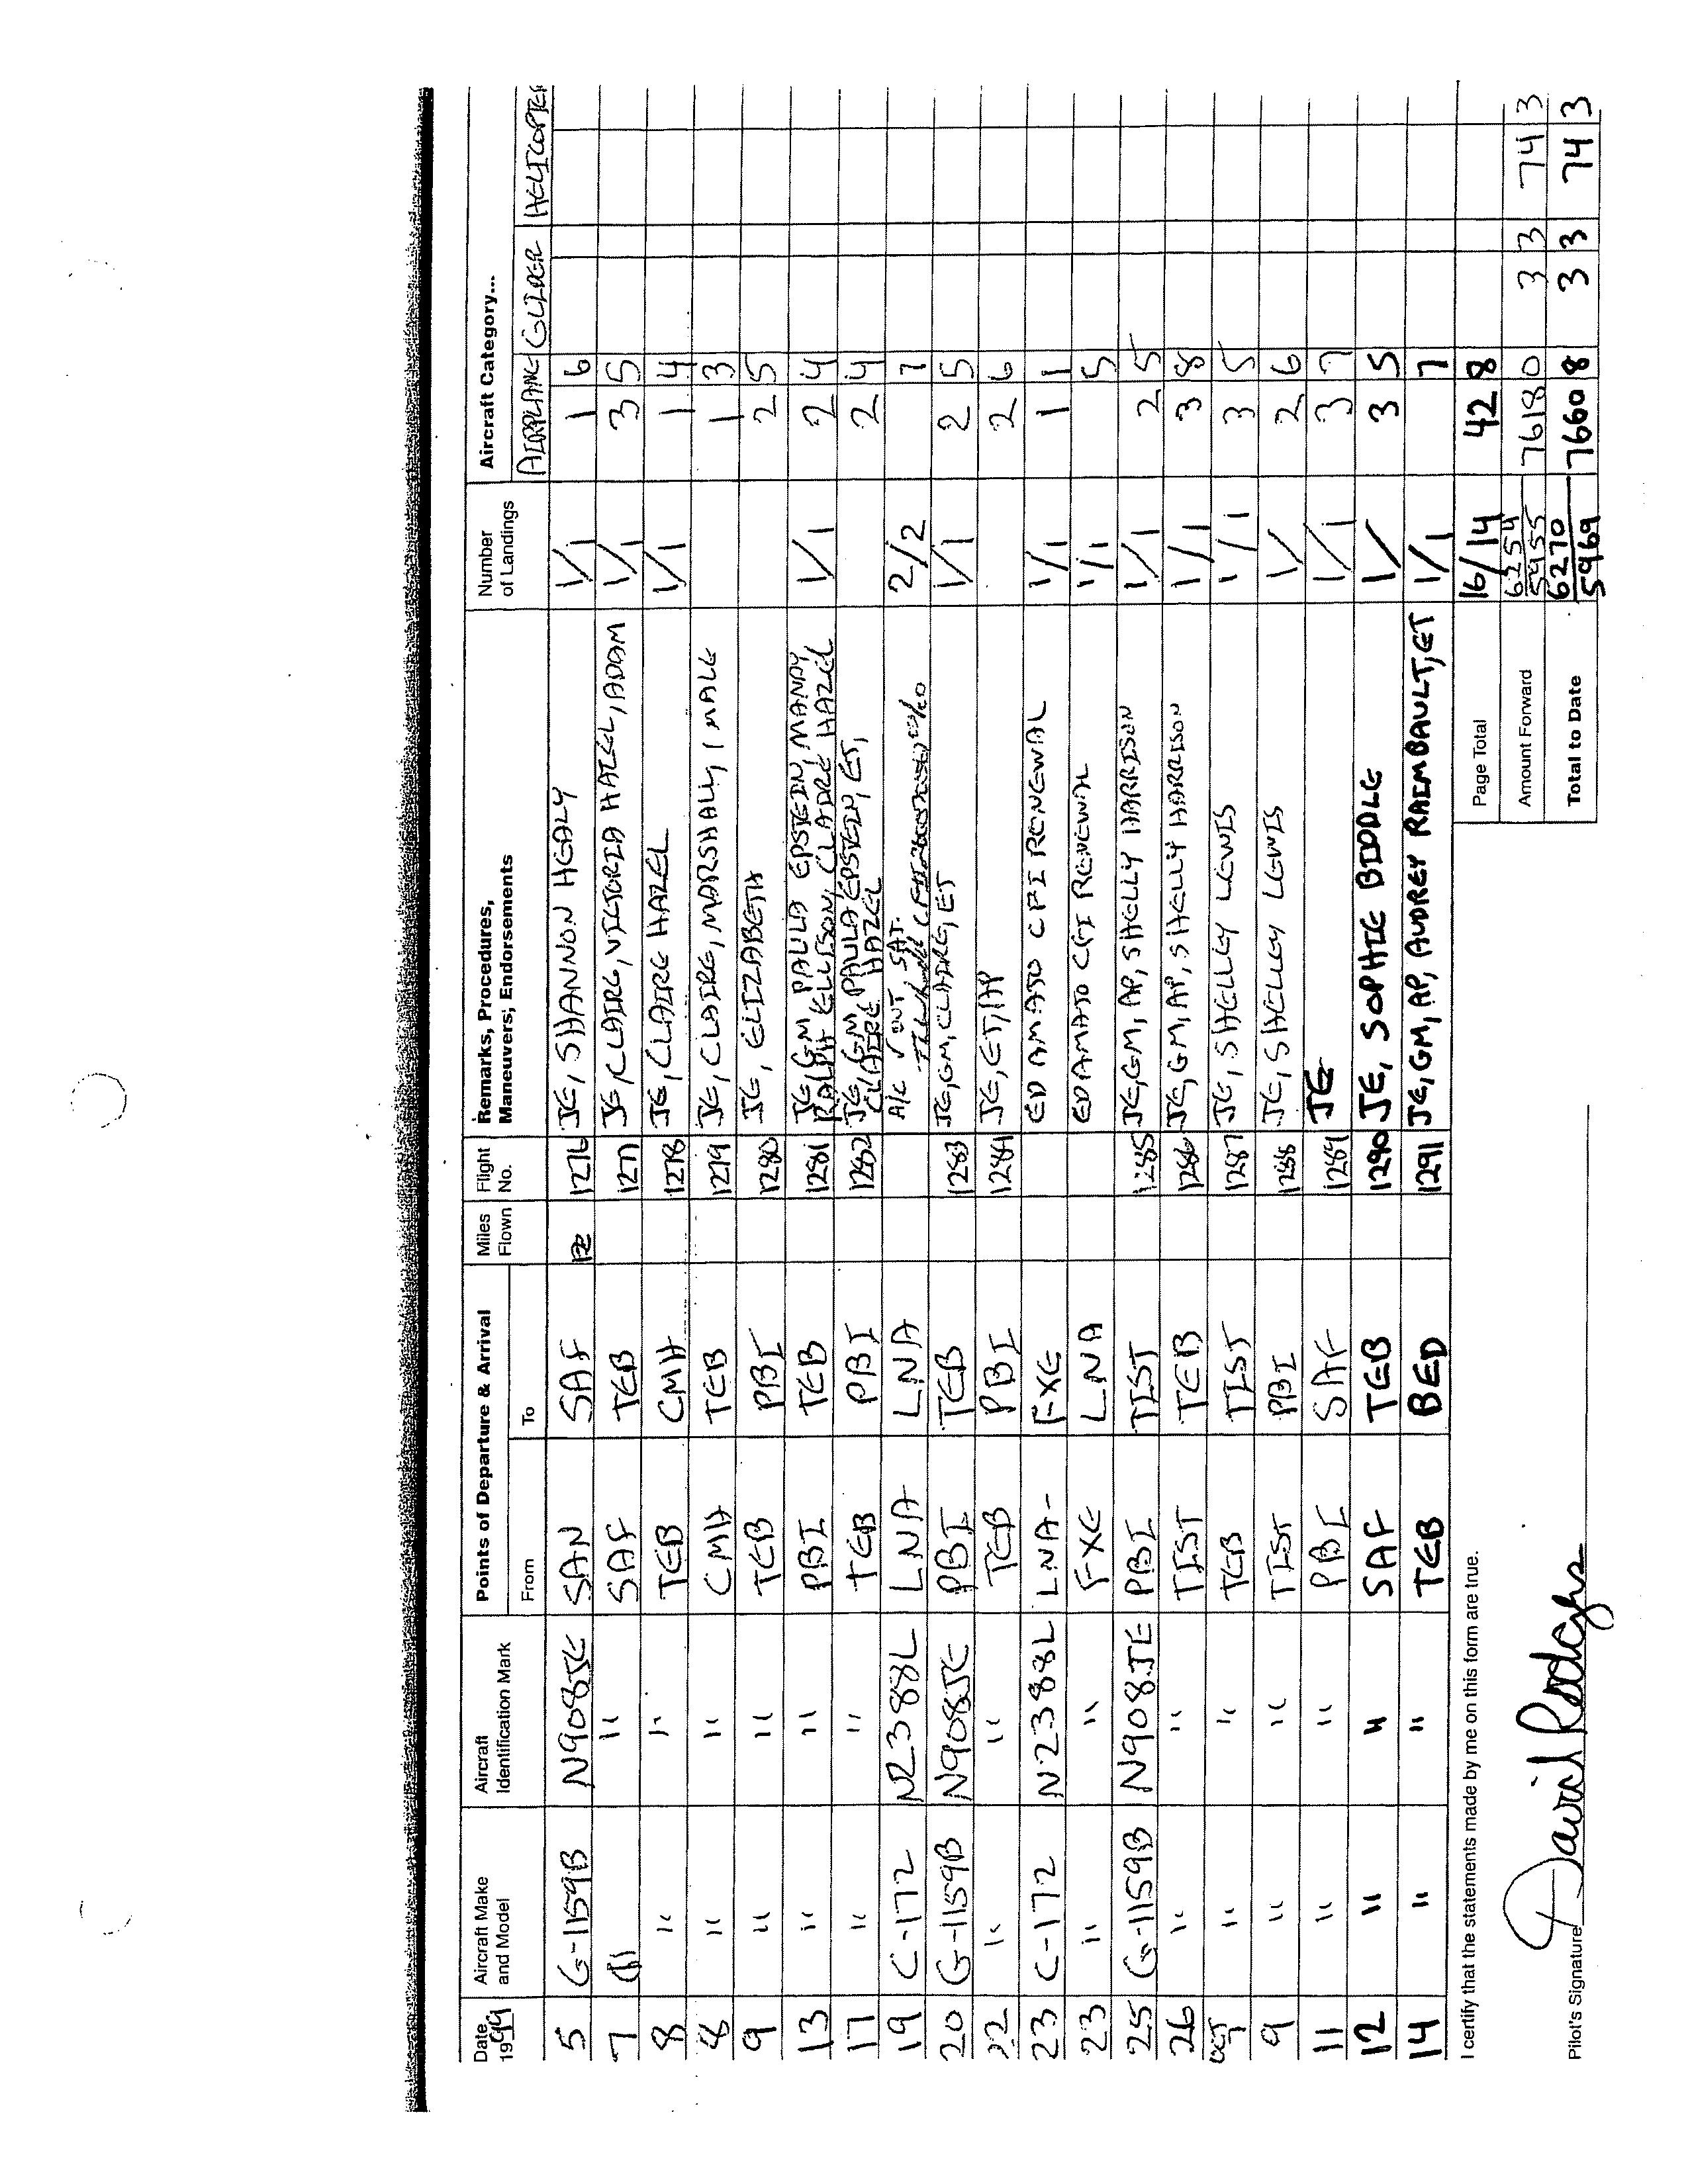 Date 1999 Aircraft Make and Model Aircraft Identification Mark Points of Departure & Arrival From To Miles Flown Flight No. Remarks, Procedures, Maneuvers, Endorsements Number of Landings Aircraft Category... AIRPLANE GLIDER HELICOPTER
5 G-1159B N908JE SAN SAF 1276 JE, SHANNON HEALY 1/1 1 6
7 " " SAF TEB 1277 JE, CLAIRE, VICTORIA HAZEL, ADAM 1/1 3 5
8 " " TEB CMH 1278 JE, CLAIRE HAZEL 1/1 1 4
8 " " CMH TEB 1279 JE, CLAIRE, MARSHALL, 1 MALE 1 3
9 " " TEB PBI 1280 JE, ELIZABETH 2 5
13 " " PBI TEB 1281 JE, GM, PAULA EPSTEIN, MANDY, RALPH ELLISON, CLAIRE HAZEL 1/1 2 4
17 " " TEB PBI 1282 JE, GM, PAULA EPSTEIN, ET, CLAIRE HAZEL 2 4
19 C-172 N2388L LNA LNA A/C SAT. 2/2 1
20 G-1159B N908JE PBI TEB 1283 JE, GM, CLAIRE, ET 1/1 2 5
22 " " TEB PBI 1284 JE, ET, AP 2 6
23 C-172 N2388L LNA- FXE ED AMATO CFI RENEWAL 1/1 1 1
23 " " FXE LNA ED AMATO CFI RENEWAL 1/1 5
25 G-1159B N908JE PBI TIST 1285 JE, GM, AP, SHELLY HARRISON 1/1 2 5
26 " " TIST TEB 1286 JE, GM, AP, SHELLY HARRISON 1/1 3 8
OCT 7 " " TEB TIST 1287 JE, SHELLEY LEWIS 1/1 3 5
9 " " TIST PBI 1288 JE, SHELLEY LEWIS 1/ 2 6
11 " " PBI SAF 1289 JE 1/1 3 7
12 " " SAF TEB 1290 JE, SOPHIE BIDDLE 1/ 3 5
14 " " TEB BED 1291 JE, GM, AP, AUDREY RAIMBAULT, ET 1/1 7
I certify that the statements made by me on this form are true.
Page Total 16/14 42 8
Amount Forward 6254 5955 7618 0 3 3 74 3
Total to Date 6270 5969 7660 8 3 3 74 3
Pilot's Signature David Rodgers